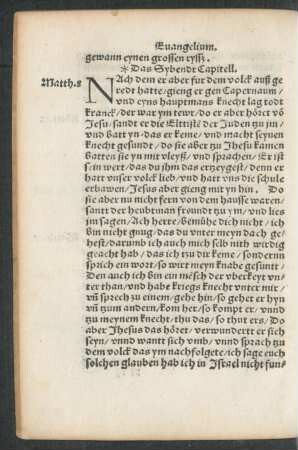 Euangelium.
gewann eynen grossen ryssz.
* Das Sybendt Capitell.
Matth. 8
NAch dem er aber fur dem volck auß ge
redt hatte/gieng er gen Capernaum/
vnd eyns hauptmans knecht lag todt
kranck/der war ym tewr/do er aber höret vō
Jesu/sandt er die Eltist der Juden zu jm/
vnd batt yn/das er keme/vnd macht seynen
knecht gesundt/do sie aber zu Jhesu kamen
batten sie yn mit vleyß/vnd sprachen/Er ist
sein wert/das du ihn das ertzeygest/denn er
hatt vnser volck lieb/vnd hatt vns die schule
erbawen/Jesus aber gieng mit yn hin. Do
sie aber nu nicht fern von dem hausse waren/
sandt der heubtman freundt tzu ym/vnd lies
jm sagen/Ach herre/bemühe dich nicht/ich
bin nicht gnug/das du vnter meyn dach ge-
hest/darumb ich auch mich selb nith wirdig
geacht hab/das ich tzu dir keme/sonderinn
sprich ein wort/so wirt meyn knabe gesuntt/
Den auch ich bin ein mēsch der vberkeyt vn-
ter than/vnd habe kriegs knecht vnter mir/
vñ sprech zu einem/gehe hin/so gehet er hyn
vñ zum andern/kom her/so kompt er/vnnd
tzu meynem knecht/thu das/so thut ers/Do
aber Jhesus das höret/verwundertt er sich
seyn/vnnd wantt sich vmb/vnnd sprach tzu
dem volck das ym nachfolgete/ich sage euch
solchen glauben hab ich in Israel nicht fun-